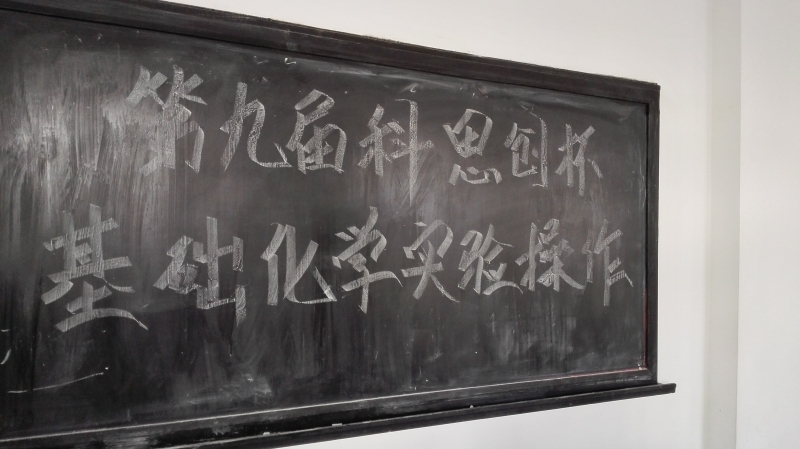 第九届科思创杯
基础化学实验操作